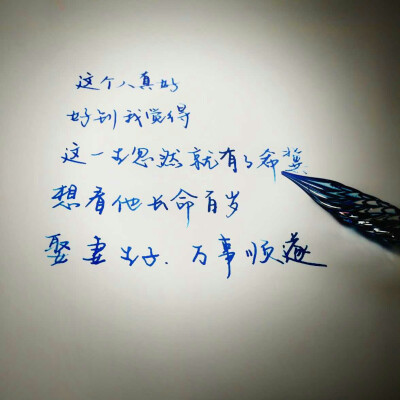 这个人真好
好到我觉得
这一生忽然就有了希冀
想看他长命百岁
娶妻生子.万事顺遂